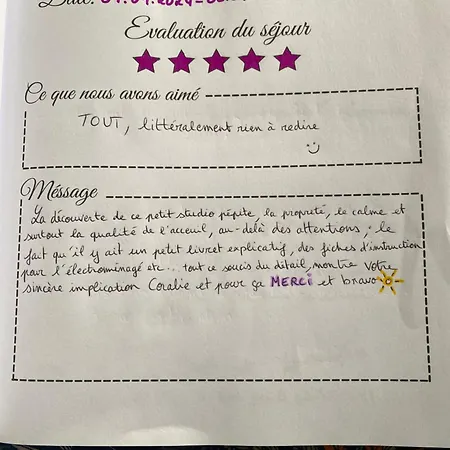 Evaluation du séjour
Ce que nous avons aimé
TOUT, littéralement rien à redire
Méssage
La découverte de ce petit studio pépite, la propreté, le calme et
surtout la qualité de l'acceuil, au-delà des attentions ; le
fait qu'il y ait un petit livret explicatif, des fiches d'instruction
pour l'électroménagé etc... tout ce soucis du détail, montre votre
sincère implication Coralie et pour ça MERCI et bravo